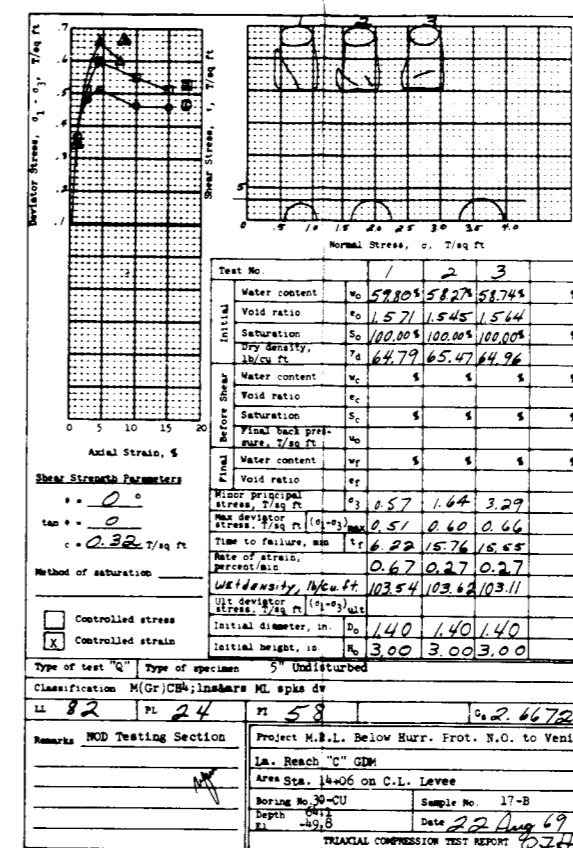 Deviator Stress, σ1 - σ3, T/sq ft
.7
.6
.5
.4
.3
.2
.1
0 5 10 15 20
Axial Strain, %
Shear Stress, τ, T/sq ft
1 2 3
.5
0 .5 1.0 1.5 2.0 2.5 3.0 3.5 4.0
Normal Stress, σ, T/sq ft
Shear Strength Parameters
φ = 0 °
tan φ = 0
c = 0.32 T/sq ft
Method of saturation
Controlled stress
X Controlled strain
Test No. 1 2 3
Initial
Water content wo 59.80% 58.27% 58.74% %
Void ratio eo 1.571 1.545 1.564
Saturation So 100.00% 100.00% 100.00% %
Dry density, lb/cu ft γd 64.79 65.47 64.96
Before Shear
Water content wc % % % %
Void ratio ec
Saturation Sc % % % %
Final back pressure, T/sq ft uo
Final
Water content wf % % % %
Void ratio ef
Minor principal stress, T/sq ft σ3 0.57 1.64 3.29
Max deviator stress, T/sq ft (σ1-σ3)max 0.51 0.60 0.66
Time to failure, min tf 6.22 15.76 15.55
Rate of strain, percent/min 0.67 0.27 0.27
Wet density, lb/cu.ft. 103.54 103.62 103.11
Ult deviator stress, T/sq ft (σ1-σ3)ult
Initial diameter, in. Do 1.40 1.40 1.40
Initial height, in. Ho 3.00 3.00 3.00
Type of test "Q" Type of specimen 5" Undisturbed
Classification M(Gr)CH4;lns&ars ML spks dw
LL 82 PL 24 PI 58 Gs 2.6672
Remarks NOD Testing Section
Project M.R.L. Below Hurr. Prot. N.O. to Veni
La. Reach "C" GDM
Area Sta. 14+06 on C.L. Levee
Boring No. 39-CU Sample No. 17-B
Depth 64.1
El -49.8 Date 22 Aug 69
TRIAXIAL COMPRESSION TEST REPORT